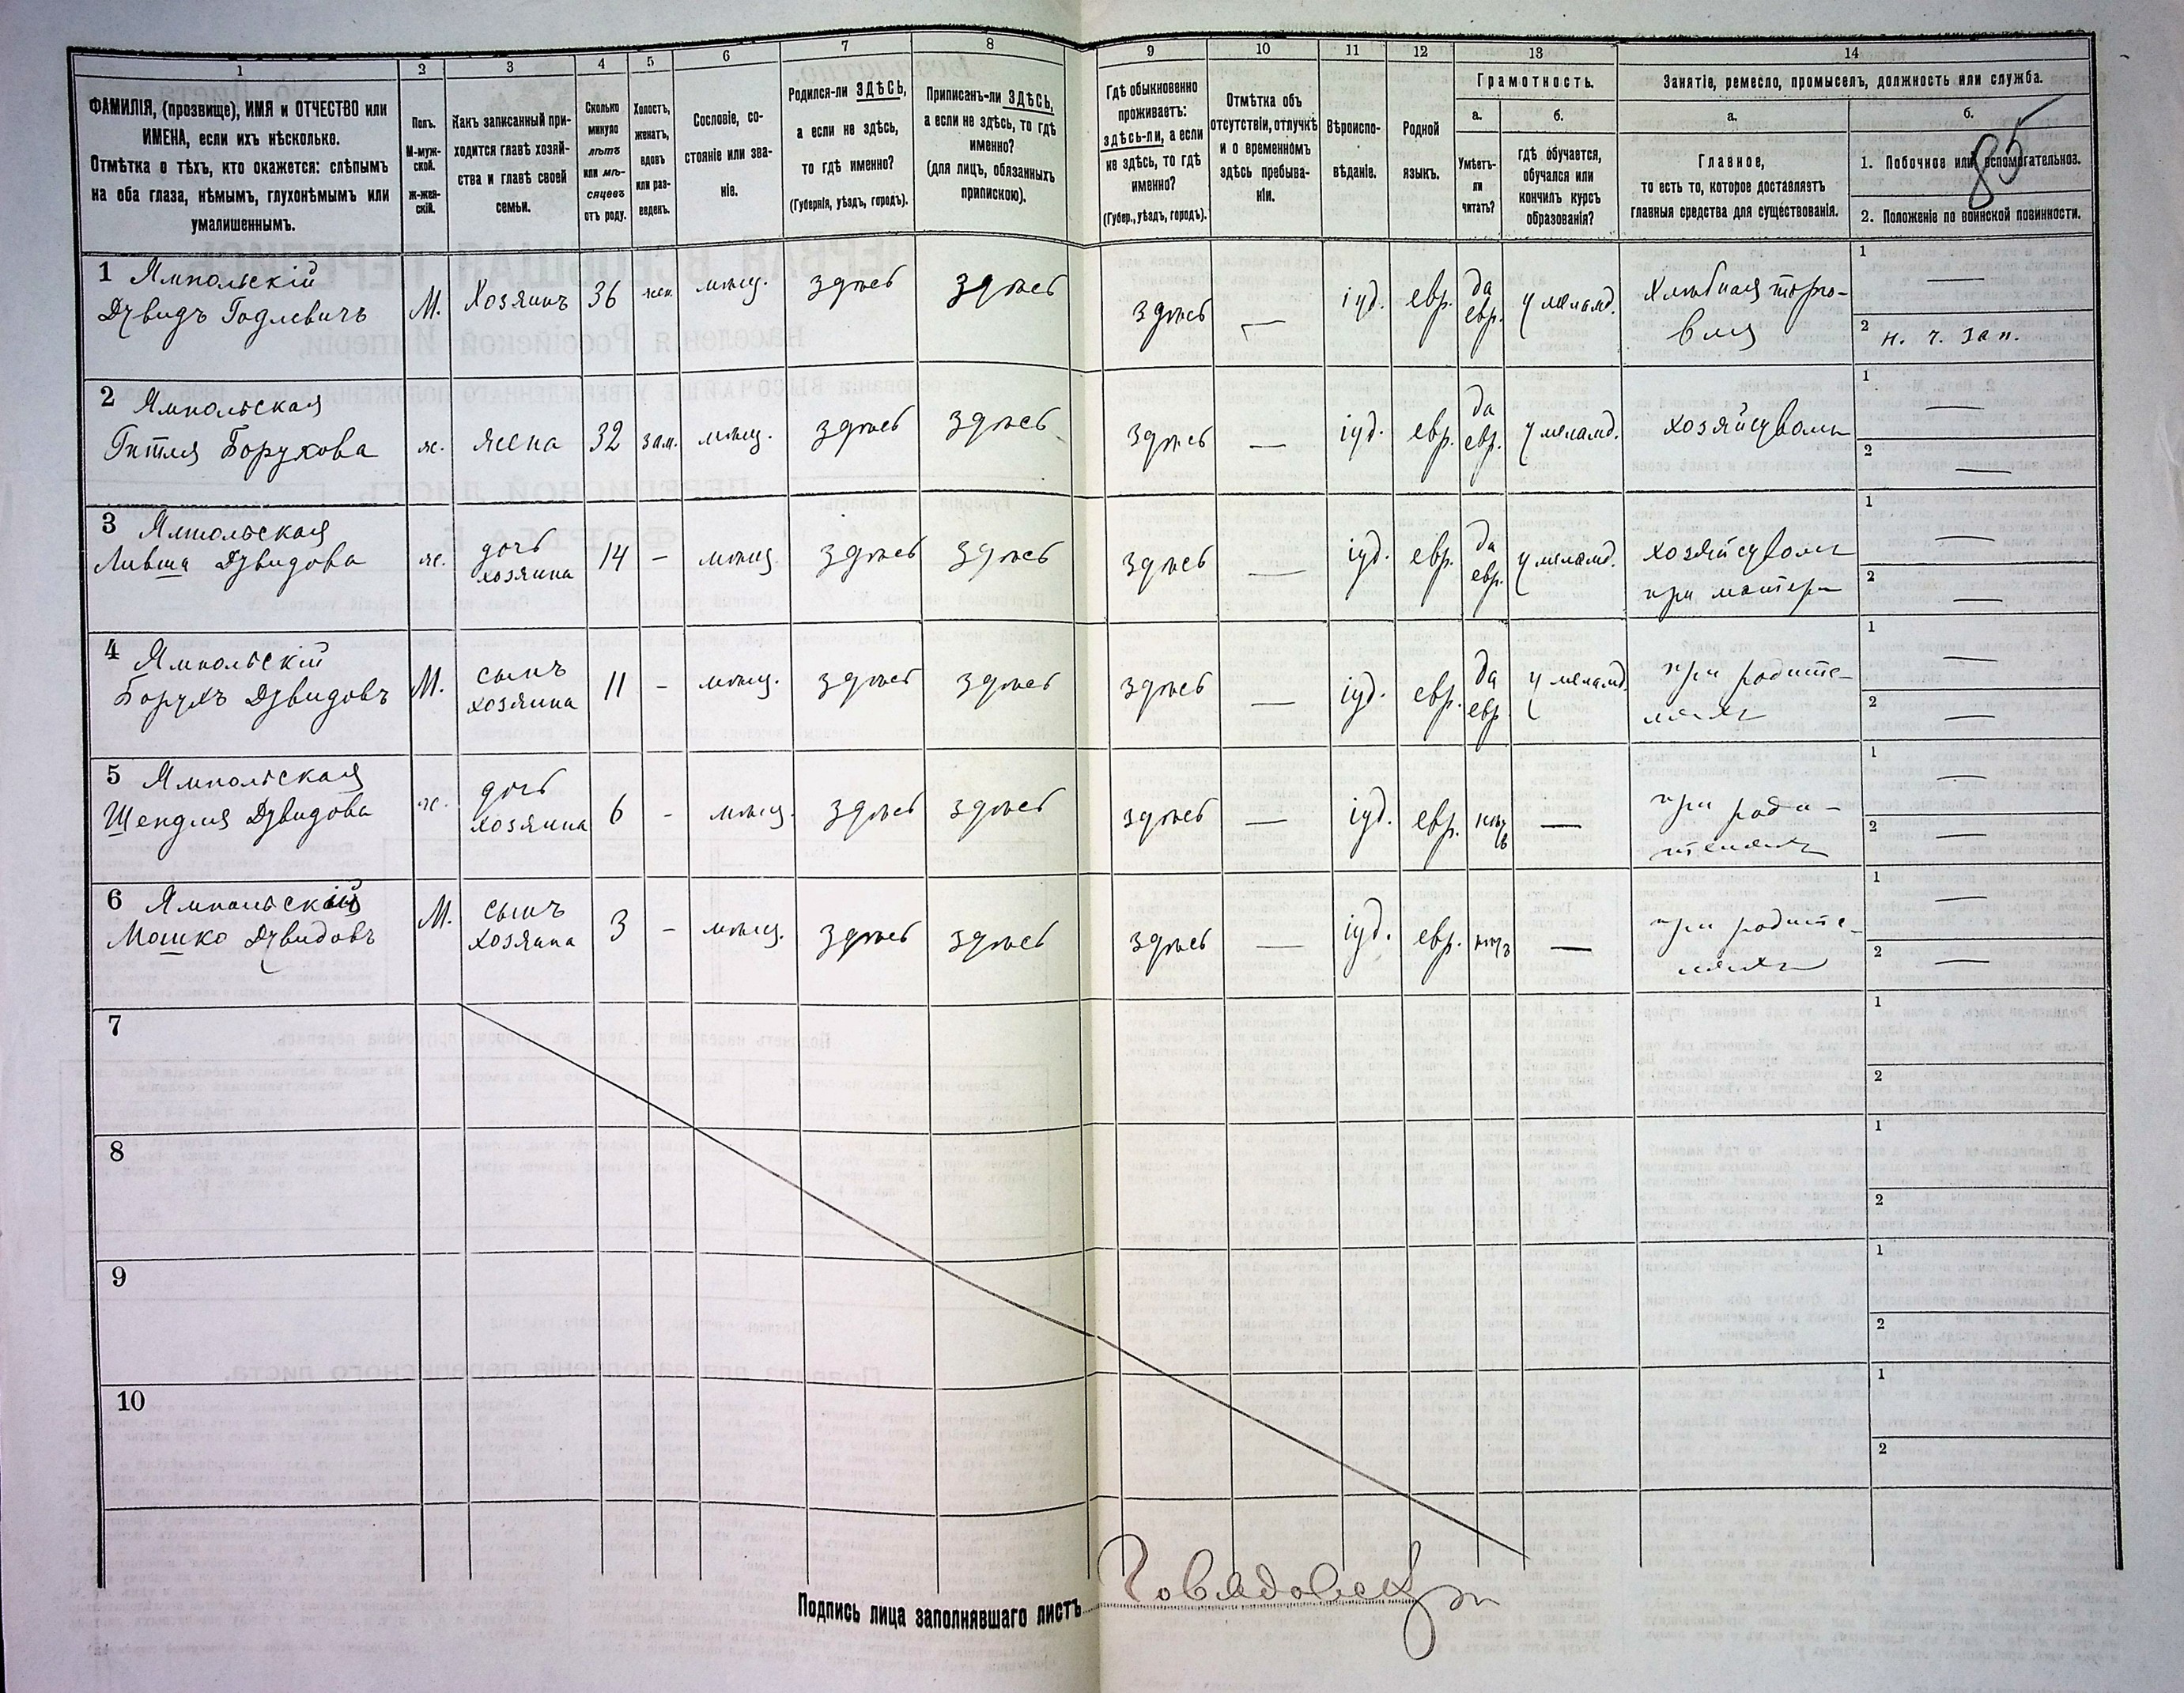 1 2 3 4 5 6 7 8 9 10 11 12 13 14
ФАМИЛІЯ, (прозвище), ИМЯ и ОТЧЕСТВО или
ИМЕНА, если ихъ нѣсколько.
Отмѣтка о тѣхъ, кто окажется: слѣпымъ
на оба глаза, нѣмымъ, глухонѣмымъ или
умалишеннымъ.
Полъ.
М-муж-
ской.
ж-жен-
скій.
Какъ записанный при-
ходится главѣ хозяй-
ства и главѣ своей
семьи.
Сколько
минуло
лѣтъ
или мѣ-
сяцевъ
отъ роду.
Холостъ,
женатъ,
вдовъ
или раз-
веденъ.
Сословіе, со-
стояніе или зва-
ніе.
Родился-ли ЗДѢСЬ,
а если не здѣсь,
то гдѣ именно?
(Губернія, уѣздъ, городъ).
Приписанъ-ли ЗДѢСЬ,
а если не здѣсь, то гдѣ
именно?
(для лицъ, обязанныхъ
припискою).
Гдѣ обыкновенно
проживаетъ:
здѣсь-ли, а если
не здѣсь, то гдѣ
именно?
(Губер., уѣздъ, городъ).
Отмѣтка объ
отсутствіи, отлучкѣ
и о временномъ
здѣсь пребыва-
ніи.
Вѣроиспо-
вѣданіе.
Родной
языкъ.
Грамотность.
а.
Умѣетъ-
ли
читать?
б.
гдѣ обучается,
обучался или
кончилъ курсъ
образованія?
Занятіе, ремесло, промыселъ, должность или служба.
а.
Главное,
то есть то, которое доставляетъ
главныя средства для существованія.
б.
1. Побочное или вспомогательное.
2. Положеніе по воинской повинности.
85
1 Ямпольскій
Дувидъ Годлевичъ
М.
Хозяинъ
36
жен.
мѣщ.
здѣсь
здѣсь
здѣсь
—
іуд.
евр.
да
евр.
у меламд.
Хлѣбная торго-
вля
1 —
2 н. ч. зап.
2 Ямпольская
Гитля Борухова
ж.
жена
32
зам.
мѣщ.
здѣсь
здѣсь
здѣсь
—
іуд.
евр.
да
евр.
у меламд.
хозяйсуваль
1 —
2 —
3 Ямпольская
Ливша Дувидова
ж.
дочь
хозяина
14
–
мѣщ.
здѣсь
здѣсь
здѣсь
—
іуд.
евр.
да
евр.
у меламд.
при матери
1 —
2 —
4 Ямпольскій
Борухъ Дувидовъ
М.
сынъ
хозяина
11
–
мѣщ.
здѣсь
здѣсь
здѣсь
—
іуд.
евр.
да
евр.
у меламд.
при родите-
ляхъ
1 —
2 —
5 Ямпольская
Шендля Дувидова
ж.
дочь
хозяина
6
–
мѣщ.
здѣсь
здѣсь
здѣсь
—
іуд.
евр.
нѣтъ
—
при роди-
теляхъ
1 —
2 —
6 Ямпольскій
Мошко Дувидовъ
М.
сынъ
хозяина
3
–
мѣщ.
здѣсь
здѣсь
здѣсь
—
іуд.
евр.
нѣтъ
—
при родите-
ляхъ
1 —
2 —
7
1
2
8
1
2
9
1
2
10
1
2
Подпись лица заполнявшаго листъ